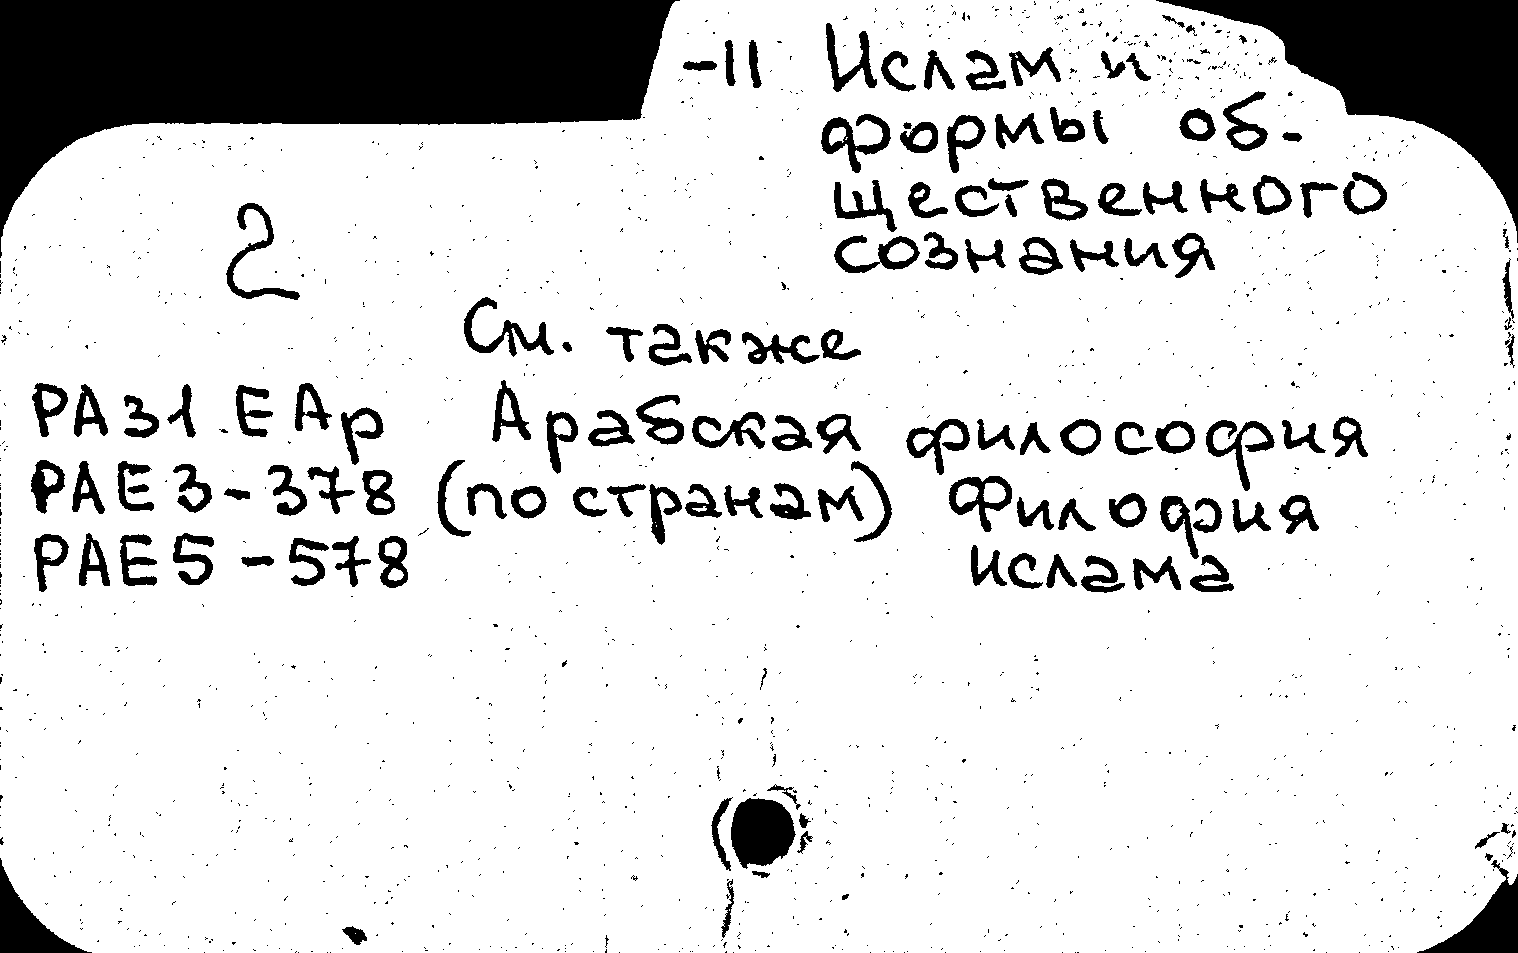 -11 Ислам и
формы об-
щественного
сознания
2
См. также
РА31.ЕАр Арабская философия
РАЕ3-378 (по странам) Филофия
РАЕ5-578 ислама